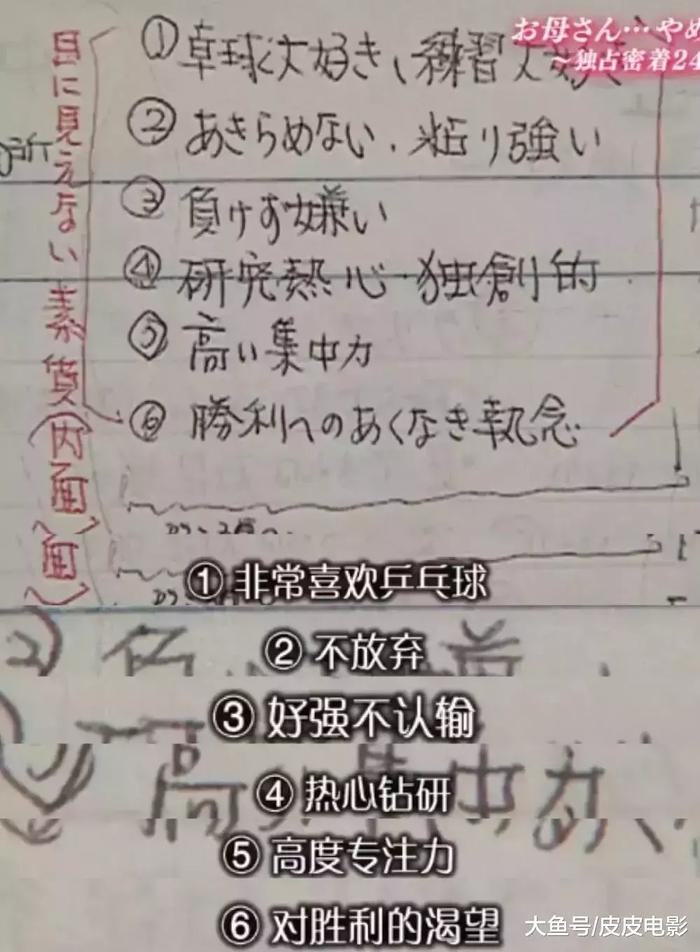 お母さん…やめ
～独占密着24
①卓球大好き、練習大好き
②あきらめない、粘り強い
③負けず嫌い
④研究熱心・独創的
⑤高い集中力
⑥勝利へのあくなき執念
目に見えない素質(内面)
面)
① 非常喜欢乒乓球
② 不放弃
③ 好强不认输
④ 热心钻研
⑤ 高度专注力
⑥ 对胜利的渴望
大鱼号/皮皮电影